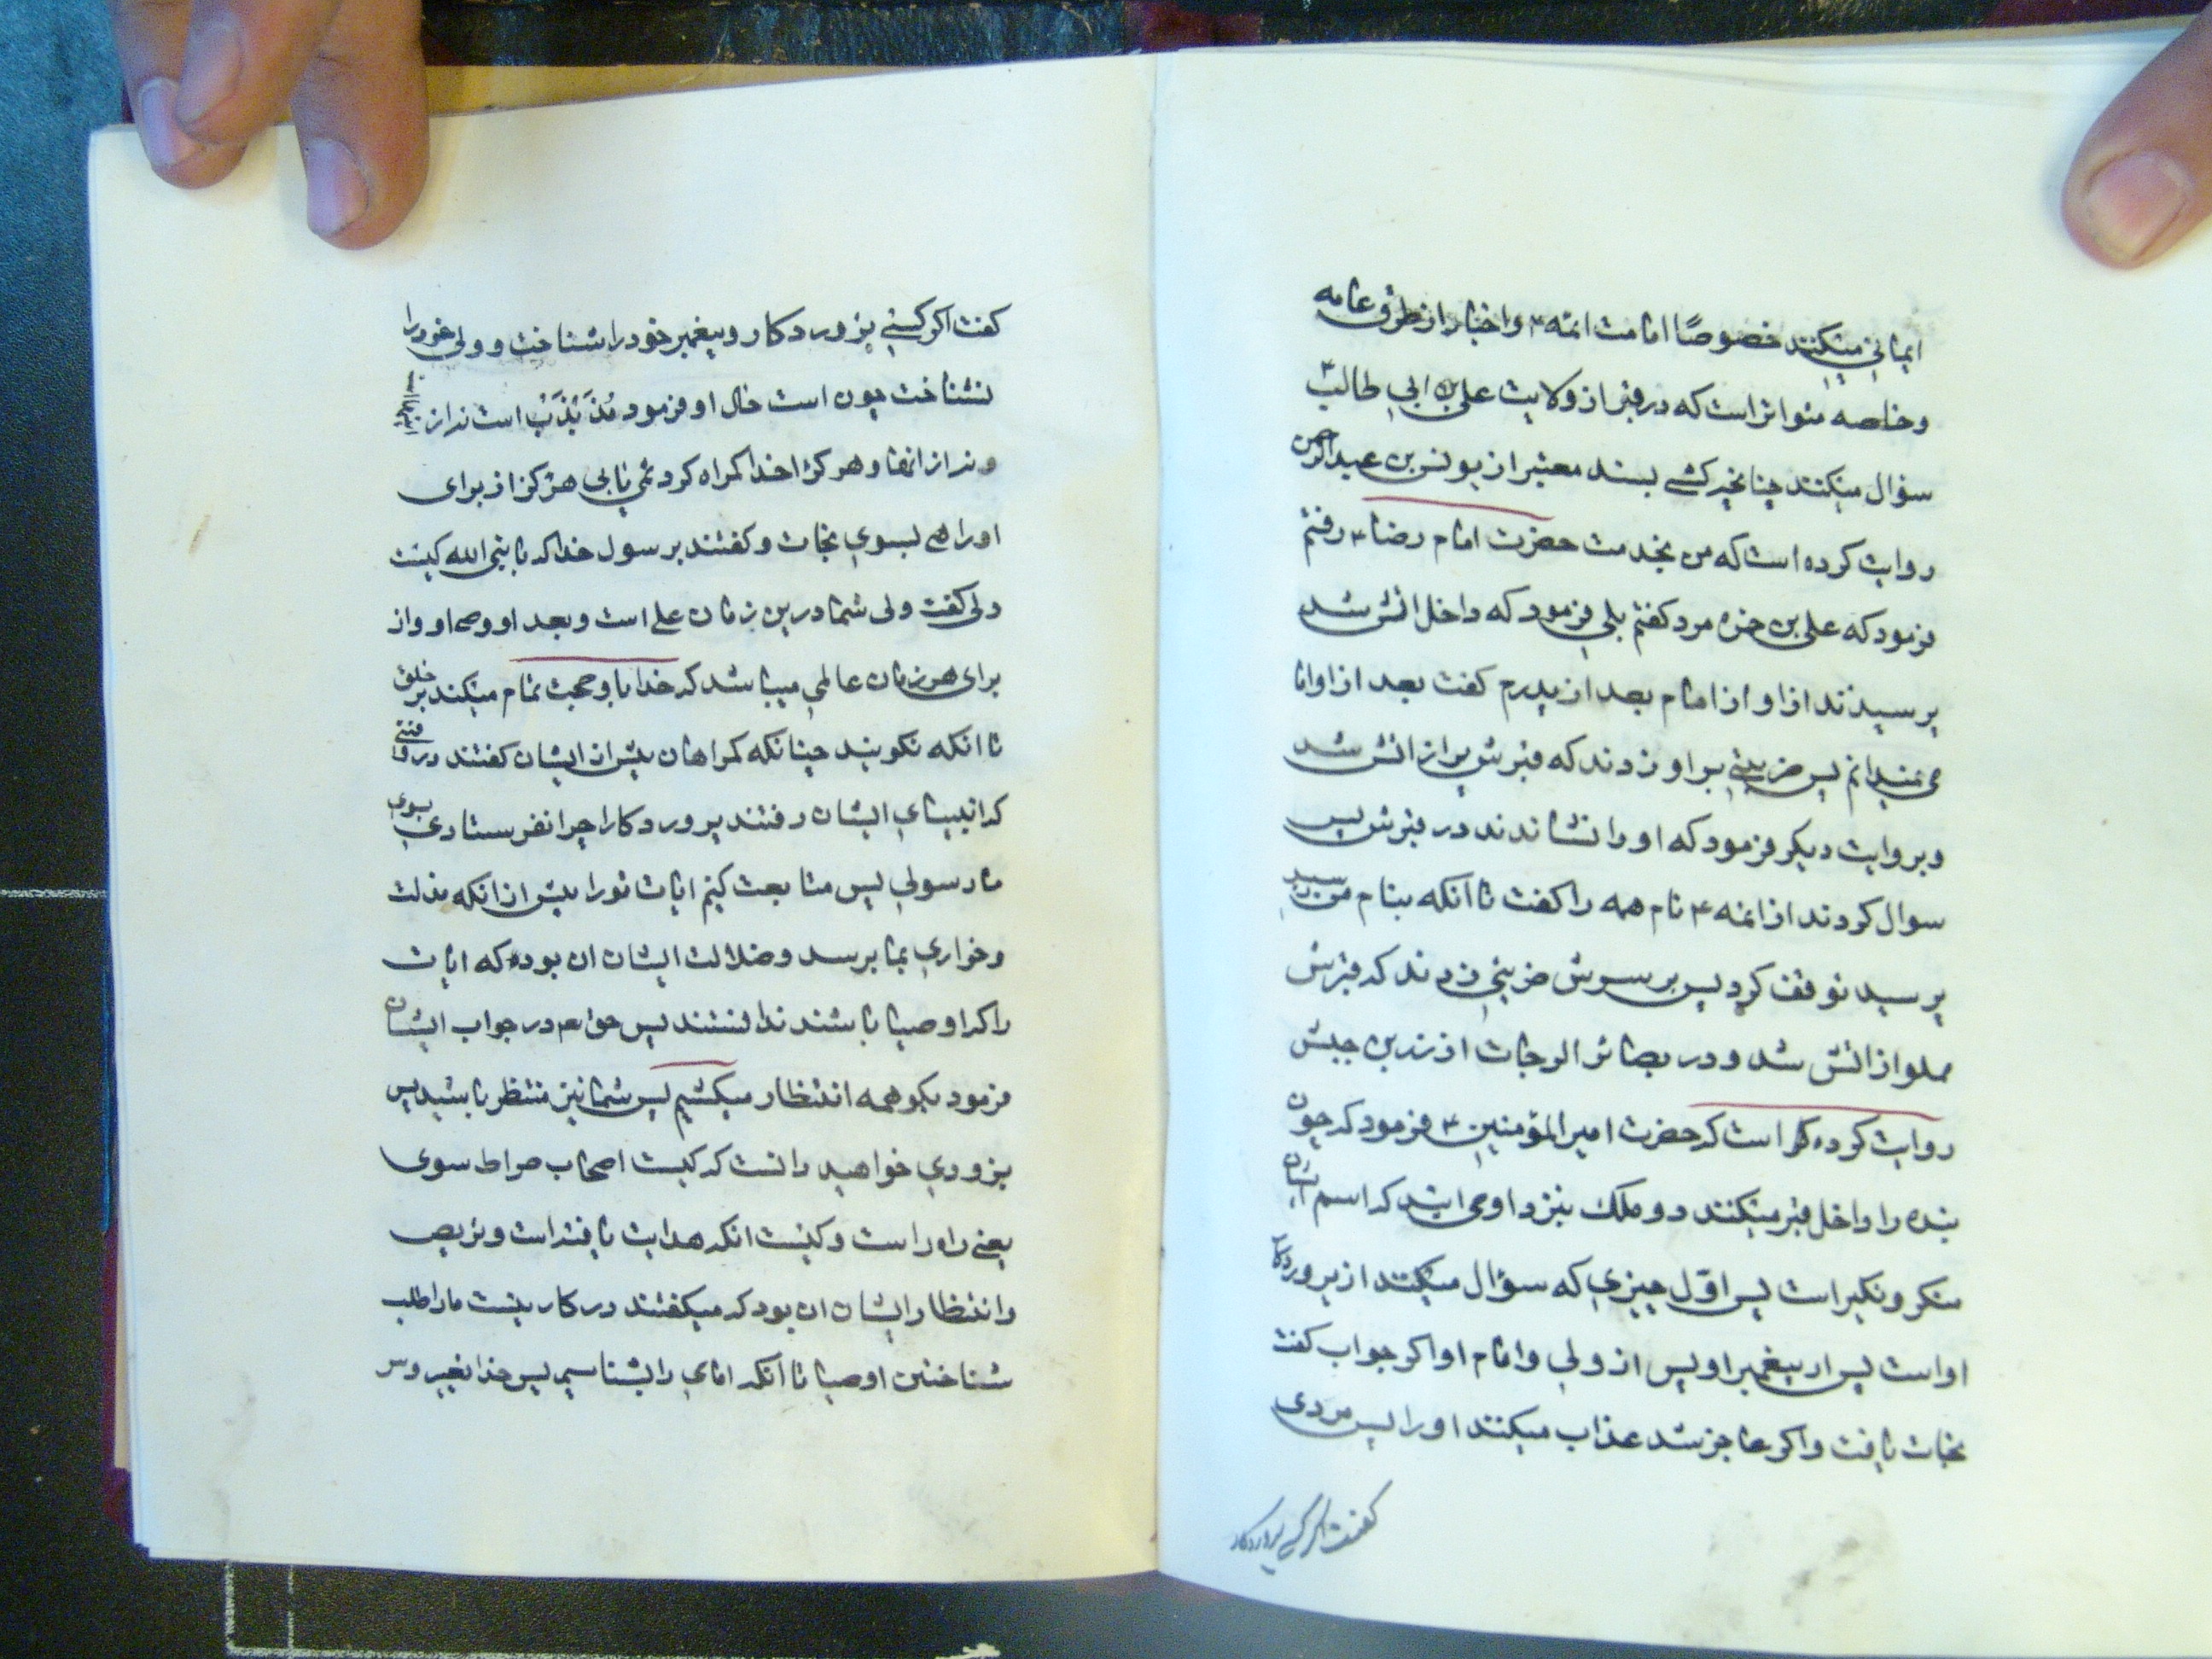 ایمانی میکنند خصوصًا امامت ائمه ۴ واخبار از طرق عامه
وخاصه متواتر است که در قبر از ولایت علی بن ابی طالب ۴
سؤال میکنند چنانچه کشی بسند معتبر از یونس بن عبدالرحمن
روایت کرده است که من بخدمت حضرت امام رضا ۴ رفتم
فرمود که علی بن حمزه مرد گفتم بلی فرمود که داخل اتش شد
پرسیدند از او از امام بعد از پدرم گفت بعد از او امام
نمیدانم پس ضربتی بر او زدند که قبرش پر از اتش شد
وبروایت دیگر فرمود که او را نشاندند در قبرش پس
سوال کردند از ائمه ۴ نام همه را گفت تا آنکه بنام من رسید
پرسید توقف کرد پس بر سرش ضربتی زدند که قبرش
مملو از اتش شد و در بصائر الدرجات از زر بن حبیش
روایت کرده است که حضرت امیر المؤمنین ۴ فرمود که چون
بنده را داخل قبر میکنند دو ملک بنزد او می ایند که اسم ایشان
منکر ونکیر است پس اوّل چیزی که سؤال میکنند از پروردگار
او است پس از پیغمبر او پس از ولی وامام او اکر جواب کفت
نجات یافت واکر عاجز شد عذاب میکنند او را پس مردی
کفت اگر کسی پروردکار
کفت اکر کسی پروردکار وپیغمبر خود را شناخت وولی خود را
نشناخت چون است حال او فرمود مُذَبْذَبْ است نه از
ونه از انها وهر کرا خدا کمراه کرد نمی یابی هرکز از برای
او راهی بسوی نجات وکفتند برسول خدا که یا نبی الله کیست
ولی کفت ولی شما درین زمان علی است وبعد او وصی او واز
برای هر زمان عالمی میباشد که خدا باو حجت تمام میکند بر خلق
تا انکه نکویند چنانکه کمراهان پیش از ایشان کفتند در وقتی
که انبیای ایشان رفتند پروردکارا چرا نفرستادی بسوی
ما رسولی پس متابعت کنیم ایات تو را پیش از انکه مذلت
وخواری بما برسد وضلالت ایشان ان بوده که ایات
را که اوصیا باشند ندانستند پس حق عم در جواب ایشان
فرمود بکو همه انتظار میکشیم پس شما نیز منتظر باشید پس
بزودی خواهید دانست که کیست اصحاب صراط سوی
یعنی راه راست وکیست انکه هدایت یافته است وتربص
وانتظار ایشان ان بود که میکفتند در کار نیست ما را طلب
شناختن اوصیا تا آنکه امامی را بشناسیم پس خدا تغییر وسر